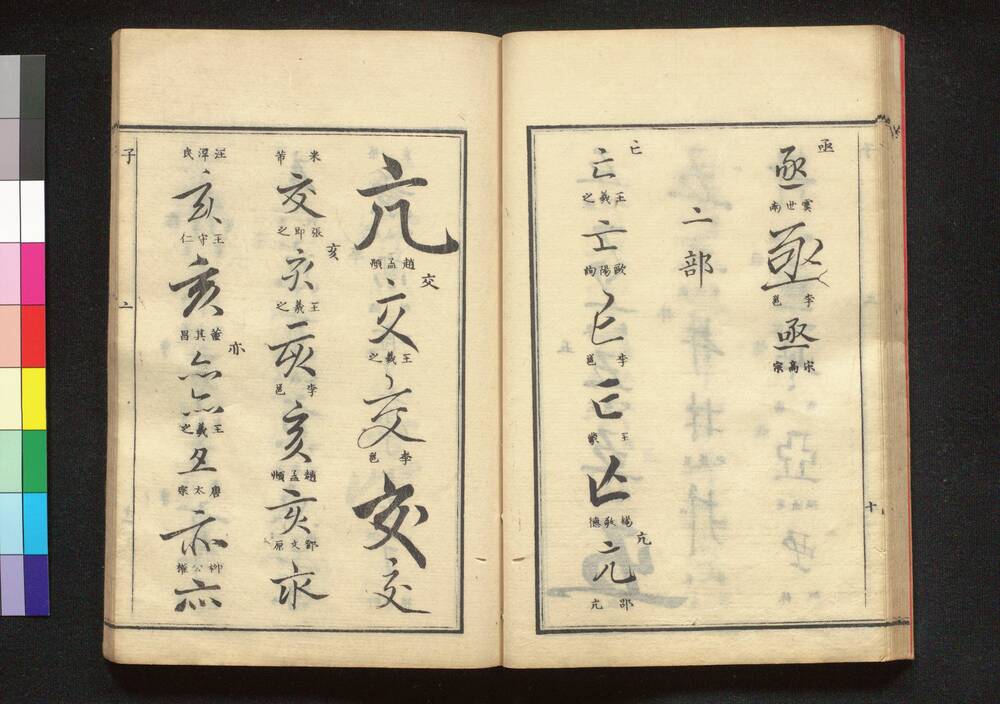 亟
亟 虞世南 亟 李邕 亟 宋高宗
亠部
亡
亡 王羲之 亡 歐陽詢 亡 李邕 亡 王蒙 亡 楊敬德
亢
亢 邵亢
十
亢 趙孟頫
交
交 王羲之 交 李邕 交 交
米芾 交 張即之
亥
亥 王羲之 亥 李邕 亥 趙孟頫 亥 鄧文原 亥
汪澤民 亥 王守仁 亥 董其昌
亦
亦 亦 王羲之 亦 唐太宗 亦 柳公權 亦
子 亠